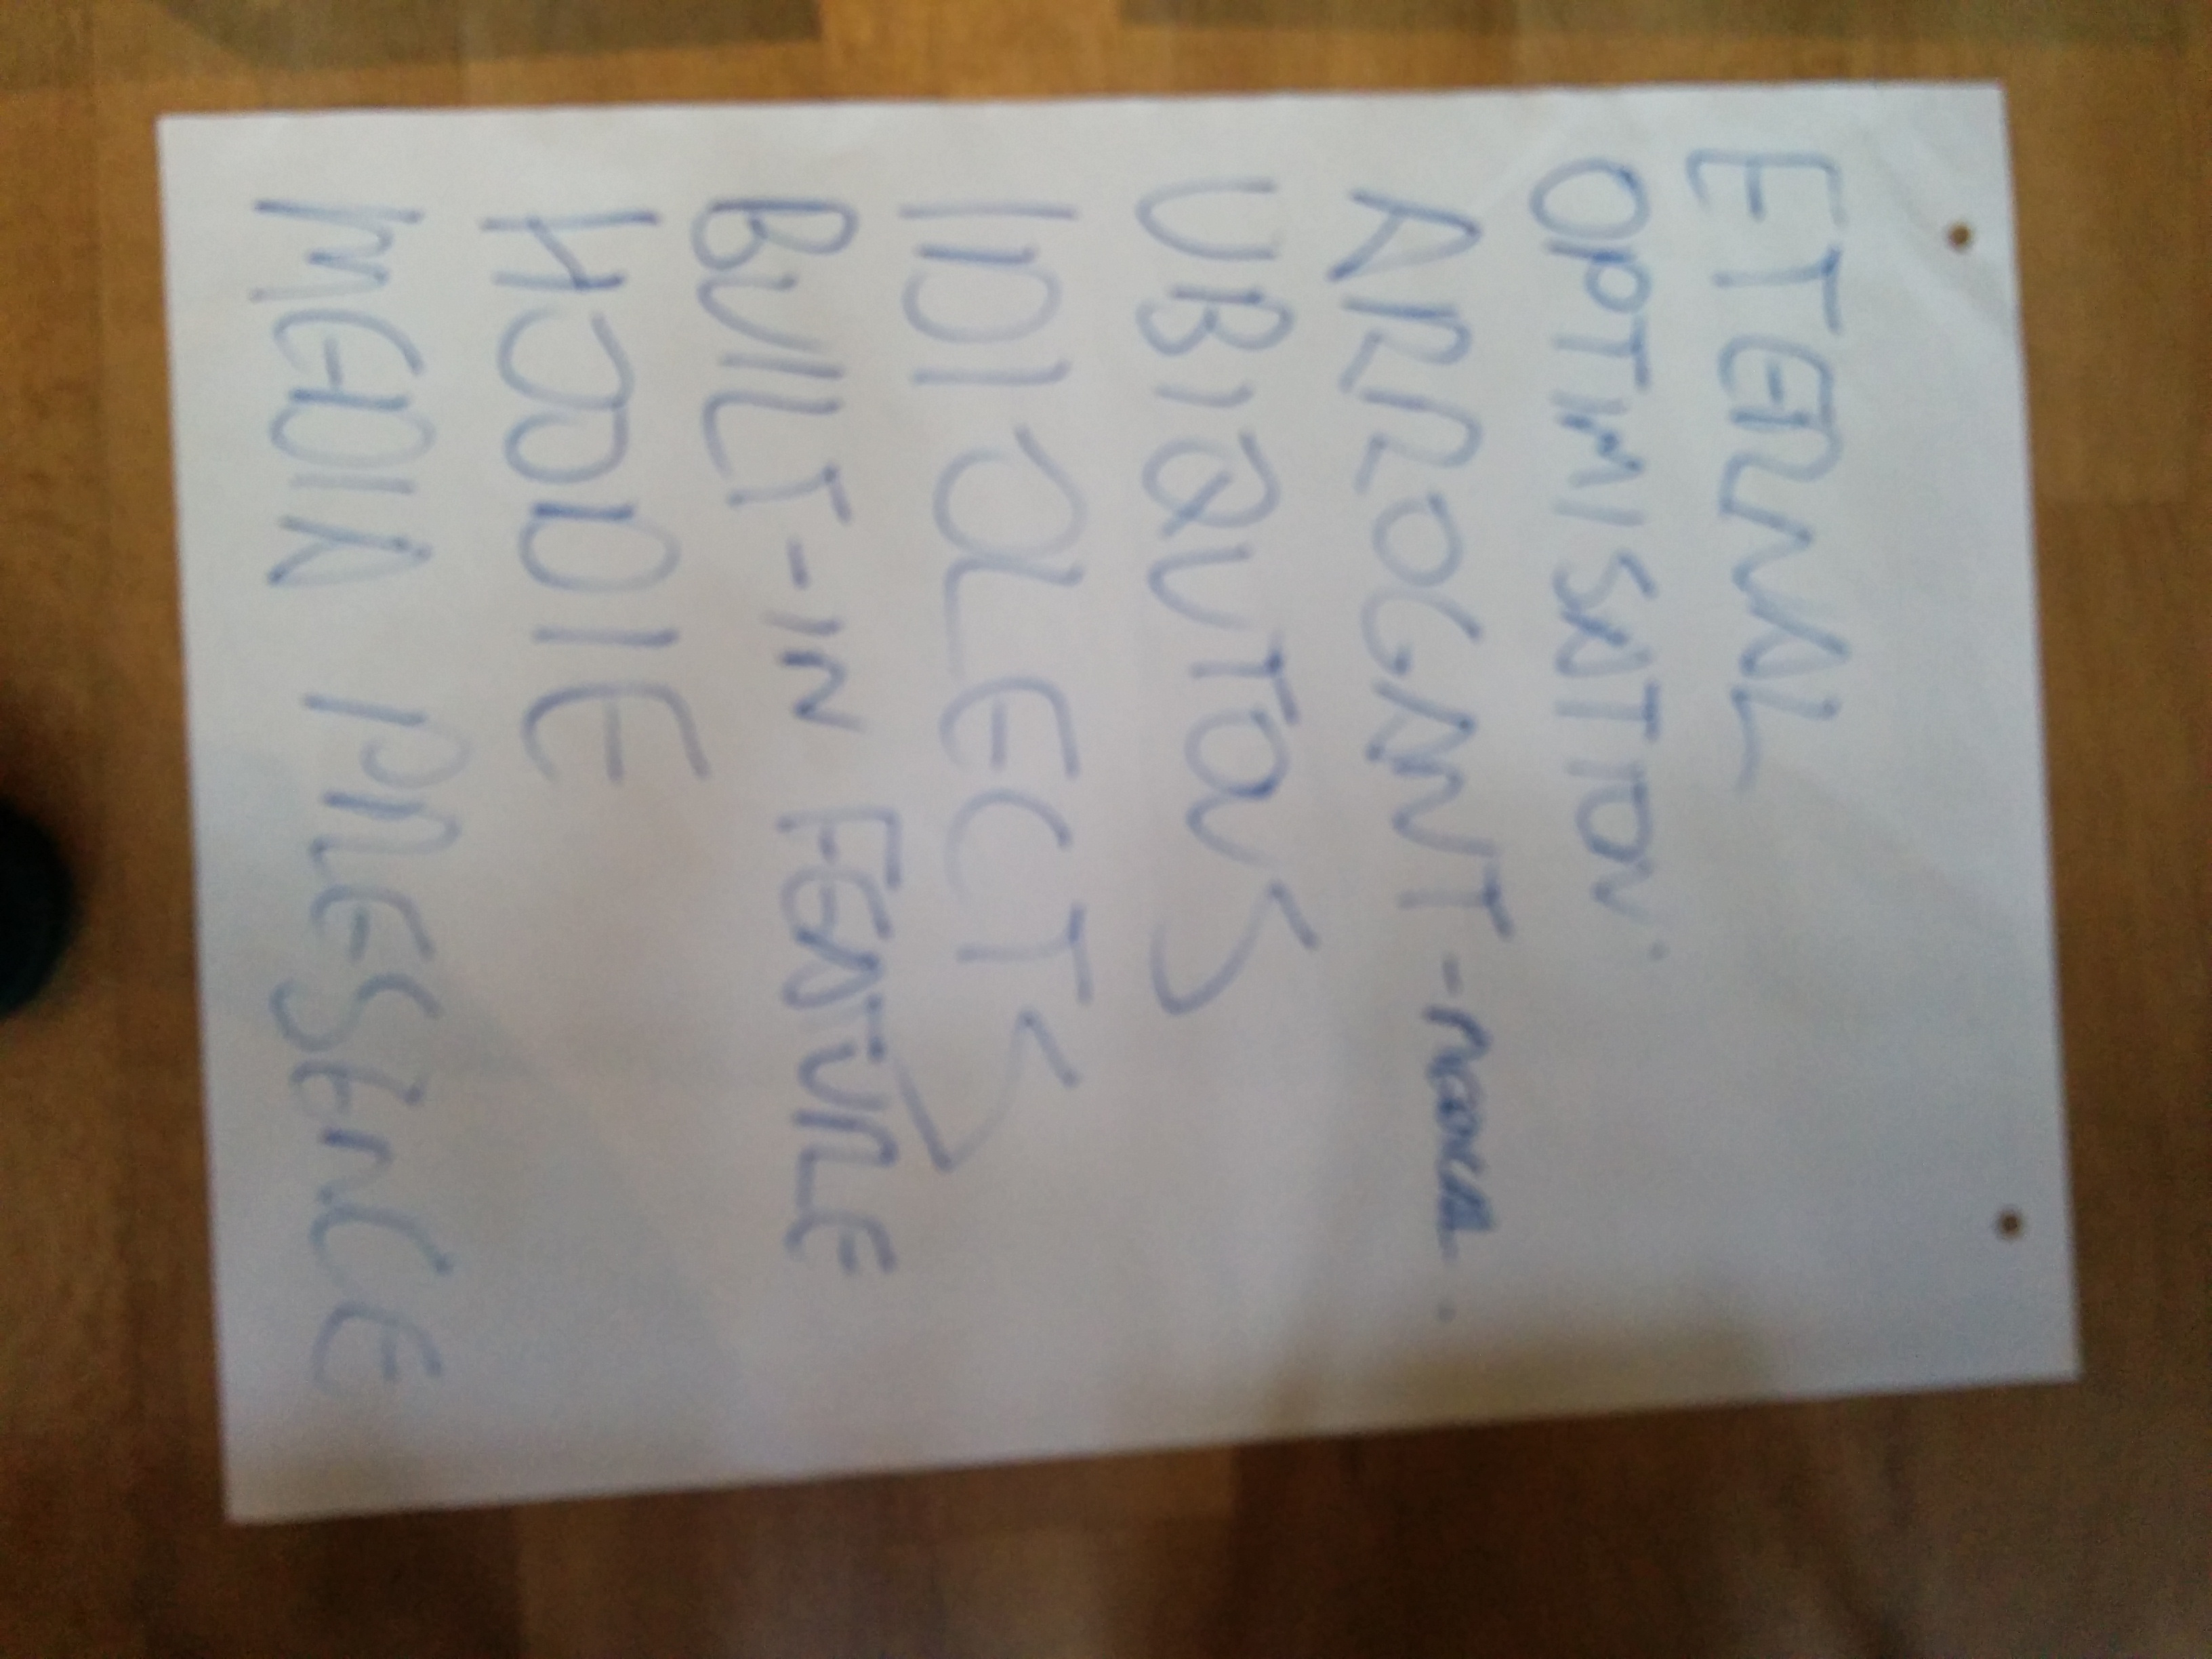 ETERNAL
OPTIMISATION
ARROGANT -
UBIQUTOUS
IDIOLECTS
BUILT-IN FEATURE
HOODIE
MEDIA PRESENCE